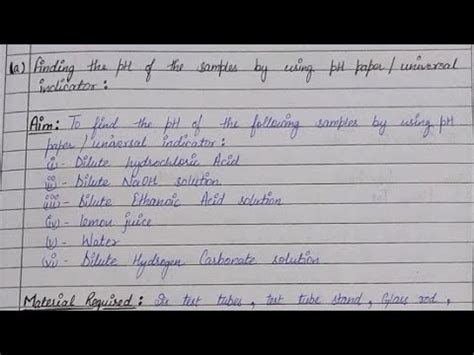 (a) Finding the pH of the samples by using pH paper / universal
indicator :
Aim : To find the pH of the following samples by using pH
paper / universal indicator :
(i) - Dilute hydrochloric Acid
(ii) - Dilute NaOH solution
(iii) - Dilute Ethanoic Acid solution
(iv) - lemon juice
(v) - Water
(vi) - Dilute Hydrogen Carbonate solution
Material Required : Six test tubes , test tube stand , Glass rod ,